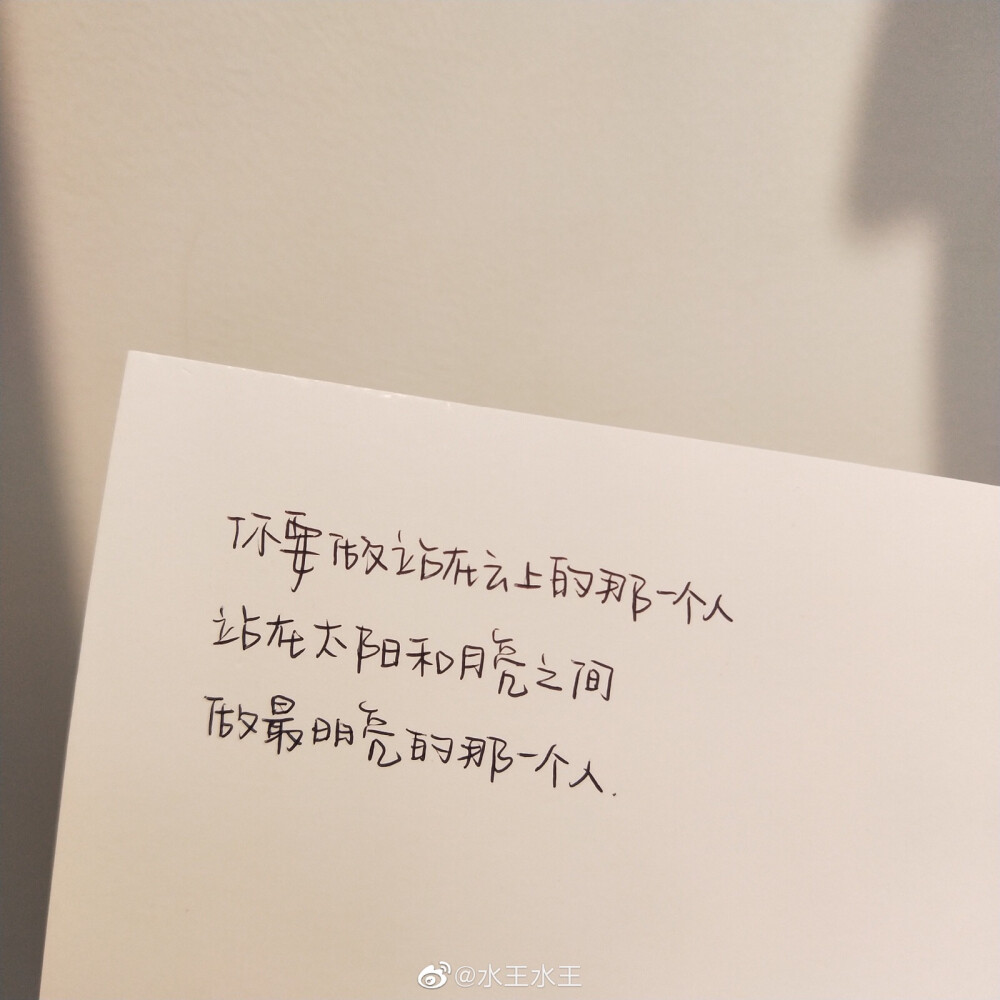 你要做站在云上的那一个人
站在太阳和月亮之间
做最明亮的那一个人.
@水王水王